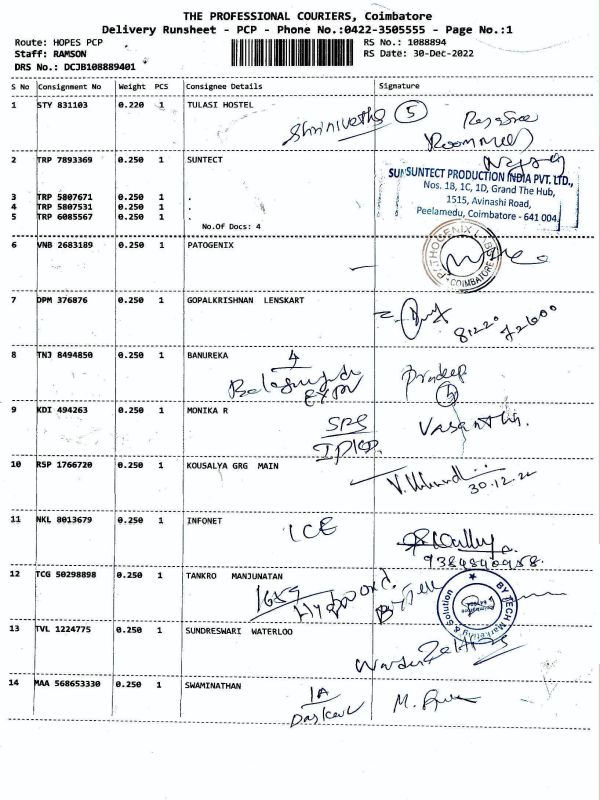 THE PROFESSIONAL COURIERS, Coimbatore
Delivery Runsheet - PCP - Phone No.:0422-3505555 - Page No.:1
Route: HOPES PCP RS No.: 1088894
Staff: RAMSON RS Date: 30-Dec-2022
DRS No.: DCJB108889401
S No Consignment No Weight PCS Consignee Details Signature
1 STY 831103 0.220 1 TULASI HOSTEL
Shrinivetha 5
2 TRP 7893369 0.250 1 SUNTECT
SUNTECT PRODUCTION INDIA PVT. LTD.,
Nos. 1B, 1C, 1D, Grand The Hub,
3 TRP 5807671 0.250 1 .
1515, Avinashi Road,
4 TRP 5807531 0.250 1 .
Peelamedu, Coimbatore - 641 004.
5 TRP 6085567 0.250 1 .
No.Of Docs: 4
6 VNB 2683189 0.250 1 PATOGENIX
COIMBATORE
7 DPM 376876 0.250 1 GOPALKRISHNAN LENSKART
8 TNJ 8494850 0.250 1 BANUREKA
4
Pradeep
9 KDI 494263 0.250 1 MONIKA R
Vasantha.
10 RSP 1766720 0.250 1 KOUSALYA GRG MAIN
30.12.22
11 NKL 8013679 0.250 1 INFONET
ICE
9384840958.
12 TCG 50298898 0.250 1 TANKRO MANJUNATAN
1659
BY TECH Marketing & Solution
13 TVL 1224775 0.250 1 SUNDRESWARI WATERLOO
14 MAA 568653330 0.250 1 SWAMINATHAN
1A